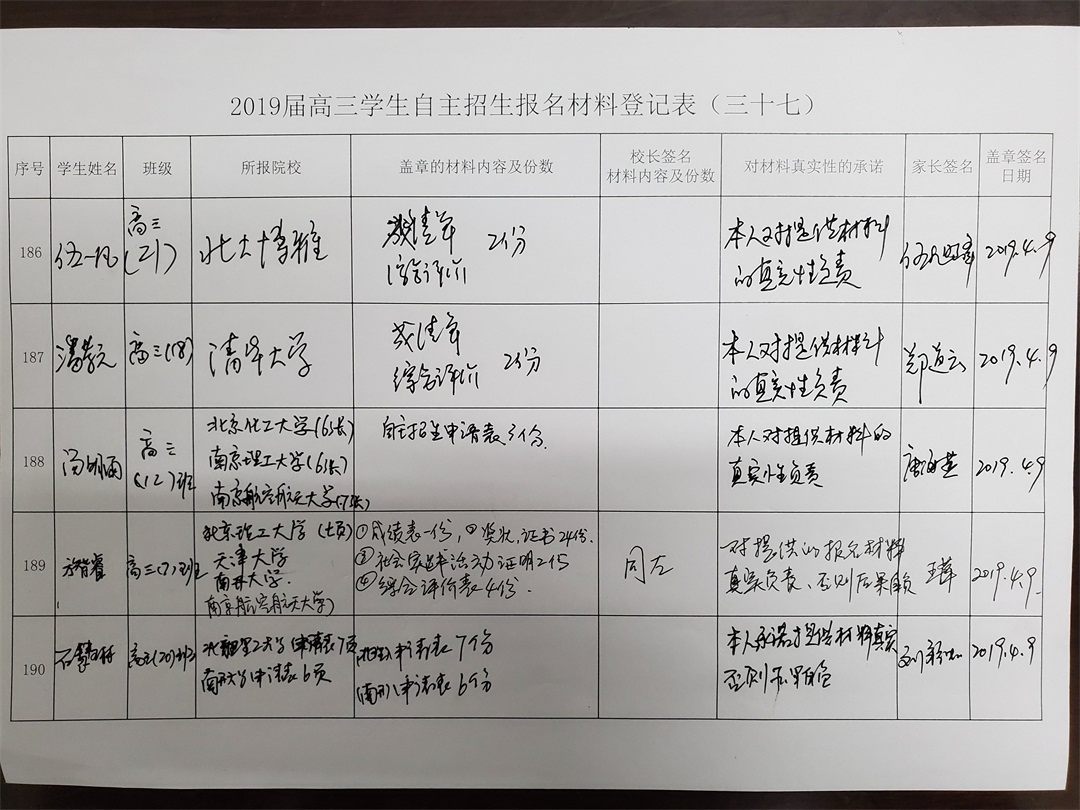 2019届高三学生自主招生报名材料登记表（三十七）
序号 学生姓名 班级 所报院校 盖章的材料内容及份数 校长签名 材料内容及份数 对材料真实性的承诺 家长签名 盖章签名 日期
186
伍一凡
高三
(21)
北大博雅
成绩单
综合评价
2份
本人对提供材料
的真实性负责
2019.4.9
187
高三(18)
清华大学
成绩单
综合评价
2份
本人对提供材料
的真实性负责
郑道云
2019.4.9
188
高三
(12)班
北京化工大学(6张)
南京理工大学(6张)
南京航空航天大学(7张)
自主招生申请表3份.
本人对提供材料的
真实性负责
2019.4.9
189
高三(7)班
北京理工大学(七页)
天津大学
南开大学.
南京航空航天大学)
①成绩表一份,②奖状,证书24份.
③社会实践活动证明2份
④综合评价表4份.
同左
对提供的报名材料
真实负责、否则后果自负
2019.4.9.
190
高三(20)班
北京理工大学申请表7页
南开大学申请表6页
申请表7份
(南开)申请表6份
本人承诺提供材料真实
否则后果自负
2019.4.9